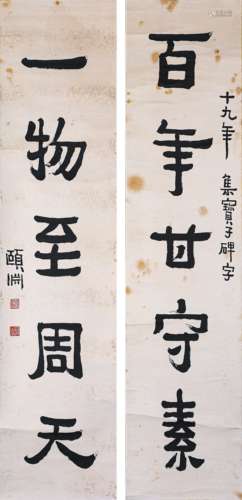 百年甘守素
十九年 集寶子碑字
一物至周天
頤淵